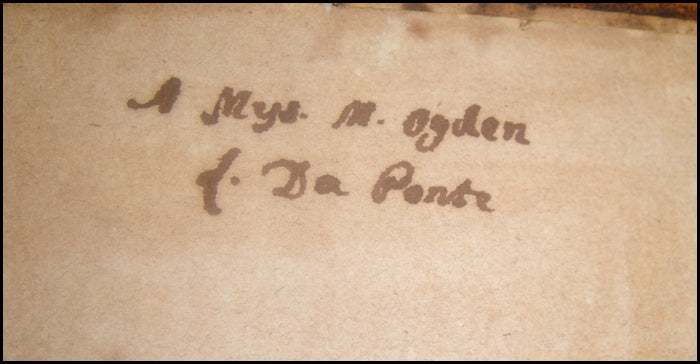 A Mys. M. Ogden
L. Da Ponte